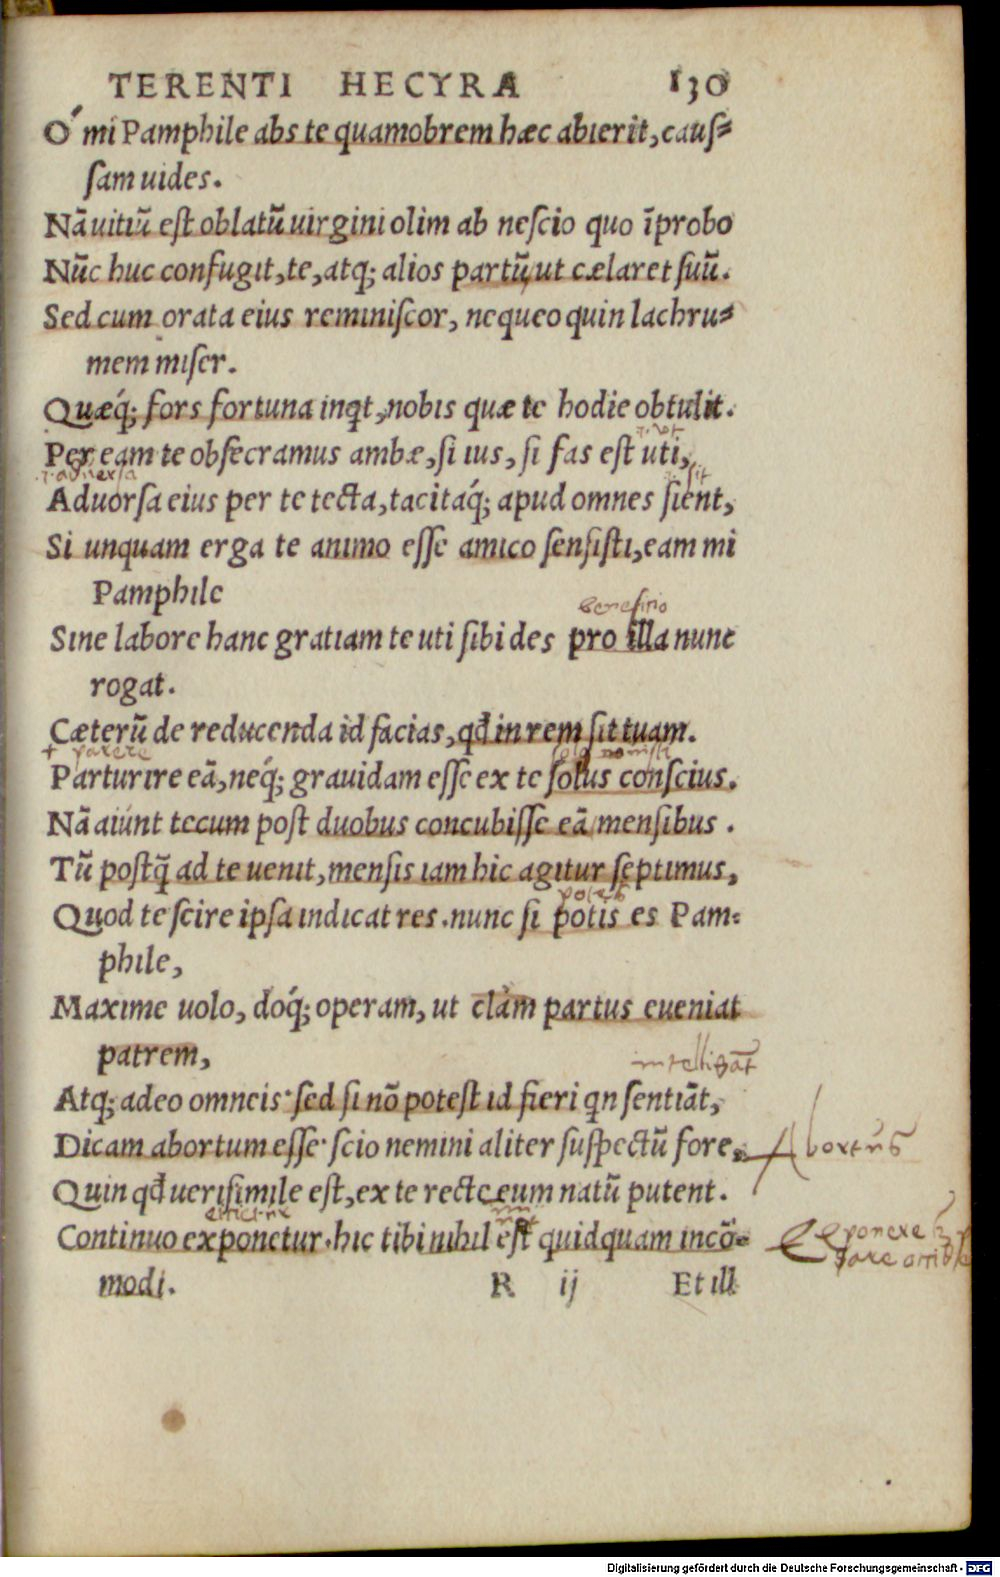 TERENTI HECYRA 130
O´ mi Pamphile abs te quamobrem hæc abierit, cauſ⸗
ſam uides.
Nā uitiū est oblatū uirgini olim ab neſcio quo īprobo
Nūc huc confugit, te, atq; alios partū ut cælaret ſuū.
Sed cum orata eius reminiſcor, nequeo quin lachru⸗
mem miſer.
Quæq́; fors fortuna inqt, nobis quæ te hodie obtulit.
Per eam te obſecramus ambæ, ſi ius, ſi fas eſt uti,
aduersa sit
Aduorſa eius per te tecta, tacitaq́; apud omnes ſient,
Si unquam erga te animo eſſe amico ſenſiſti, eam mi
Pamphile
beneficio
Sine labore hanc gratiam te uti ſibi des pro illa nunc
rogat.
Cæterū de reducenda id facias, qđ in rem ſit tuam.
+ parere
Parturire eā, neq́; grauidam eſſe ex te ſolus conſcius.
Nā aiunt tecum poſt duobus concubiſſe eā menſibus .
Tū poſtq̄ ad te uenit, menſis iam hic agitur ſeptimus,
Quod te ſcire ipſa indicat res .nunc ſi potis es Pam-
phile,
Maxime uolo, doq́; operam, ut clàm partus eueniat
patrem,
intelligāt
Atq; adeo omneis· ſed ſi nō poteſt id fieri qn ſentiāt,
Dicam abortum eſſe· ſcio nemini aliter ſuſpectū fore,
Abortus
Quin qđ ueriſimile eſt, ex te recte eum natū putent.
Continuo exponetur .hic tibi nihil eſt quidquam incō-
exponere
modi. R ij Et ill
Digitalisierung gefördert durch die Deutsche Forschungsgemeinschaft - DFG